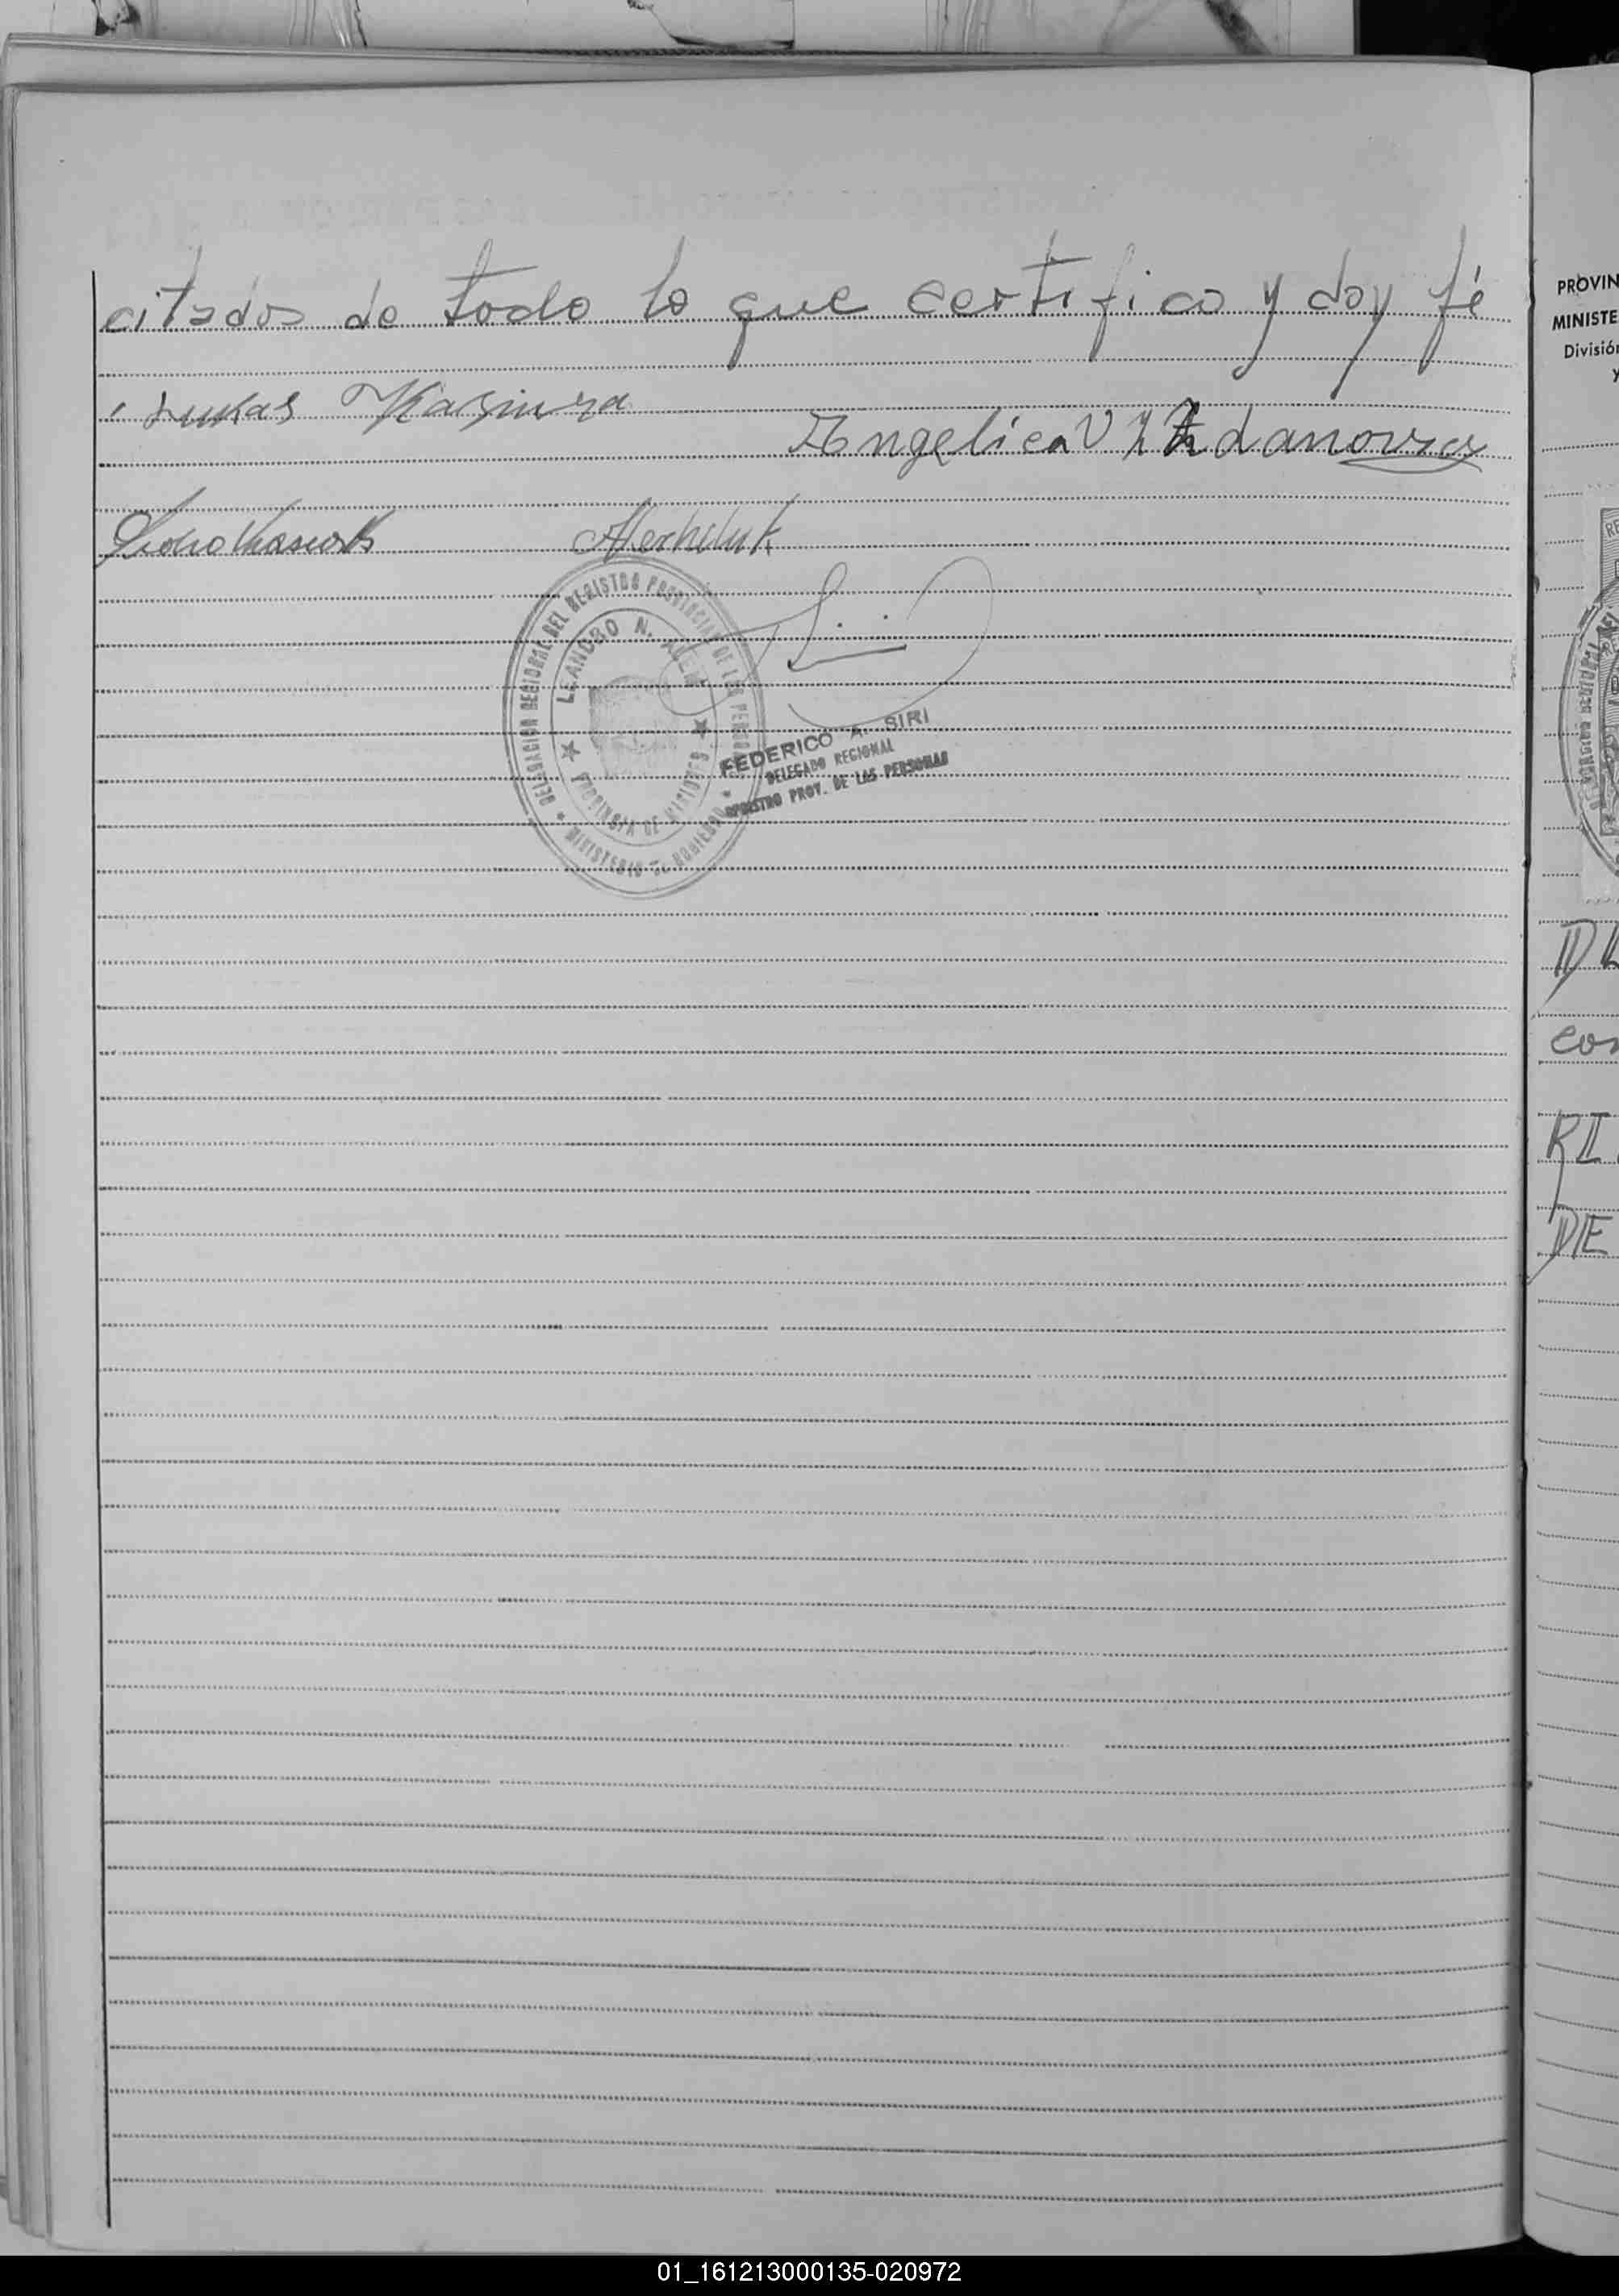 citados de todo lo que certifico y doy fé
Lukas Kasiura
Angelica V Z Zdanowicz
DELEGACION REGIONAL DEL REGISTRO PROVINCIAL DE LAS PERSONAS
LEANDRO N. ALEM
PROVINCIA DE MISIONES
MINISTERIO DE GOBIERNO
FEDERICO A. SIRI
DELEGADO REGIONAL
REGISTRO PROV. DE LAS PERSONAS
PROVIN
MINISTE
División
y
RI
DE
01_161213000135-020972